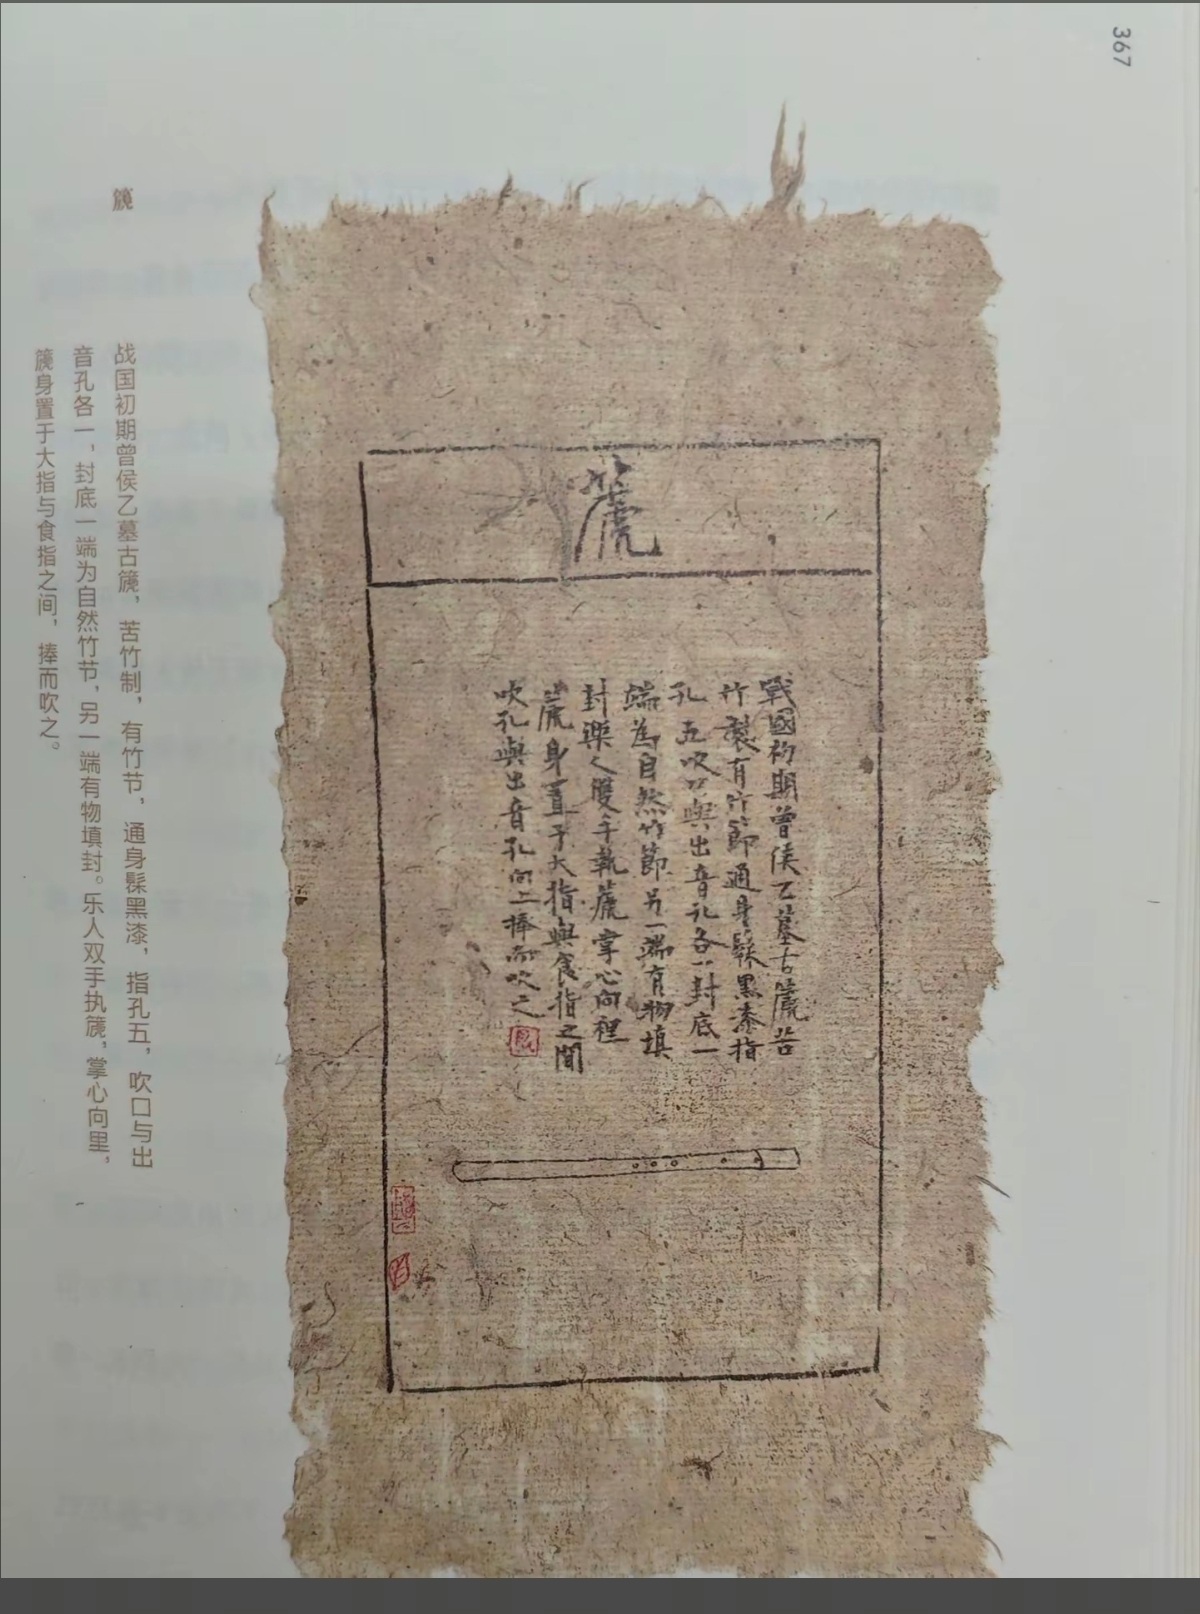 367
篪
戰國初期曾侯乙墓古篪苦
竹製有竹節通身髹黑漆指
孔五吹口與出音孔各一封底一
端為自然竹節另一端有物填
封樂人雙手執篪掌心向裡
篪身置于大指與食指之間
吹孔與出音孔向上捧而吹之
篪
战国初期曾侯乙墓古篪，苦竹制，有竹节，通身髹黑漆，指孔五，吹口与出
音孔各一，封底一端为自然竹节，另一端有物填封。乐人双手执篪，掌心向里，
篪身置于大指与食指之间，捧而吹之。